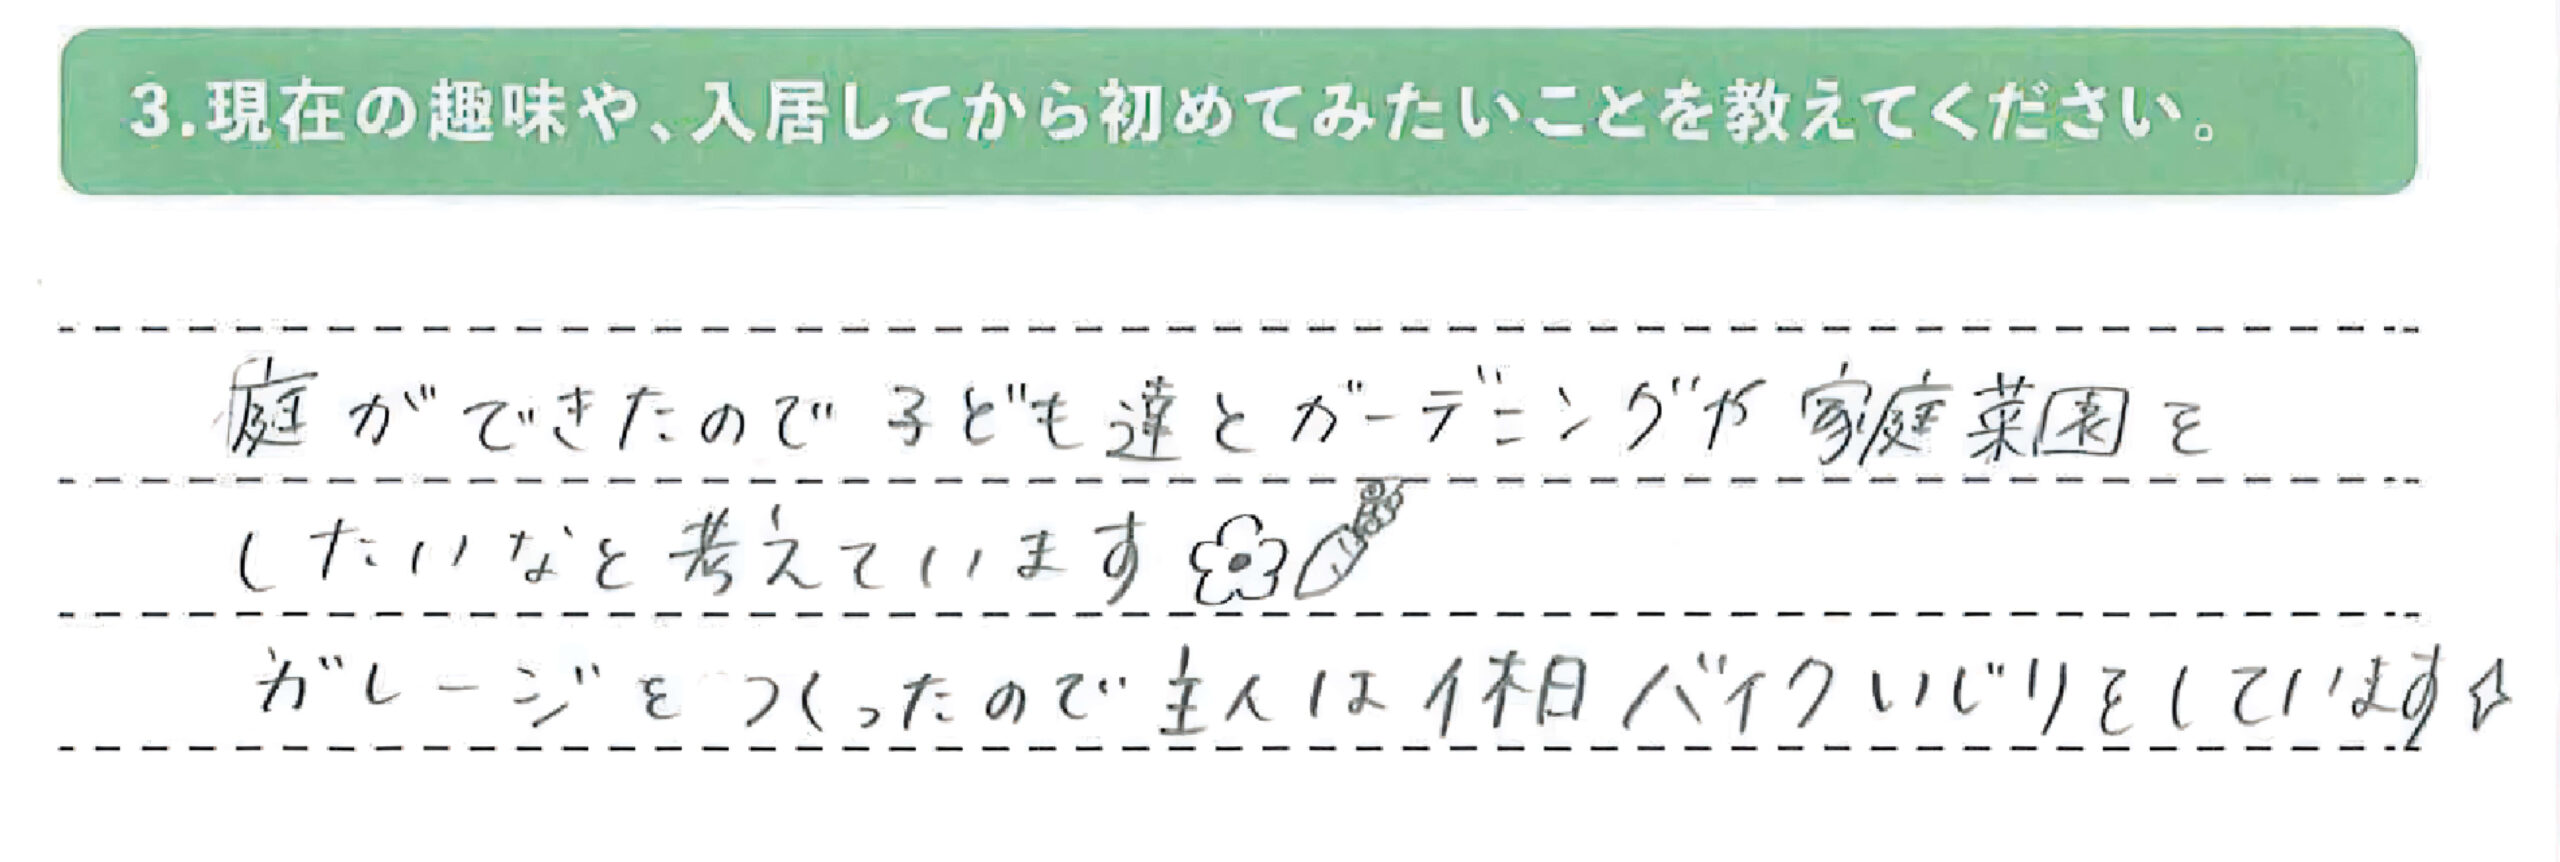 3.現在の趣味や、入居してから初めてみたいことを教えてください。
庭ができたので子ども達とガーデニングや家庭菜園を
したいなと考えています
ガレージをつくったので主人は休日バイクいじりをしています☆